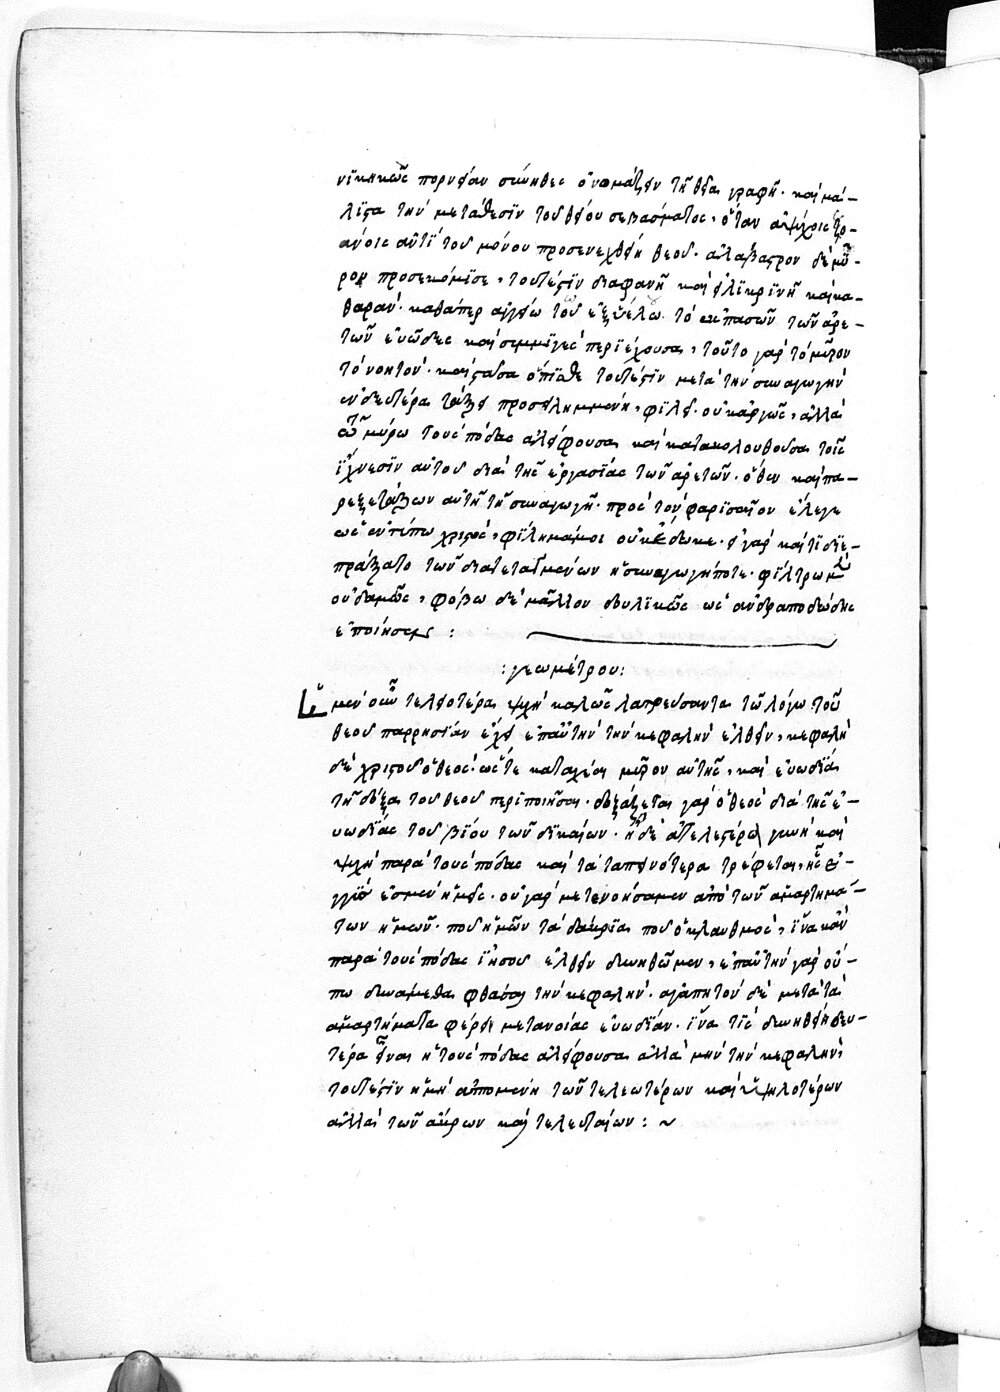 νϊκηκῶς πορνείαν σύνηθες ὀνομάζειν τῆ θεία γραφῆ· καὶ μά-
λϊστα τὴν μετάθεσϊν τοῦ θείου σεβάσματος, ὅταν
ἀντὶ τοῦ μόνου προσενεχθῆ θεοῦ· ἀλάβαστρον δὲ μύ-
ρου προσεκόμϊσε, τουτέστϊν διαφανῆ καὶ εἰλϊκρϊνῆ καὶ κα-
θαράν· καθάπερ ἀγγείω τὸ ἐκ πασῶν τῶν ἀρε-
τῶν εὐῶδες καὶ συμμϊγὲς περϊέχουσα, τοῦτο γὰρ τὸ μῦρον
τὸ νοητόν· καὶ στᾶσα ὄπϊσθε τουτέστϊν μετὰ τὴν συναγωγὴν
ἐν δευτέρα τάξει προσειλημμένη, φϊλεῖ· οὐκ ἀργῶς, ἀλλὰ
τῶ μύρω τοὺς πόδας ἀλείφουσα καὶ κατακολουθοῦσα τοῖς
ἴχνεσϊν αὐτοῦ διὰ τῆς ἐργασίας τῶν ἀρετῶν· ὅθεν καὶ πα-
ρεξετάζων αὐτῆ τῆ συναγωγῆ· πρὸς τὸν φαρϊσαῖον ἔλεγε
ὡς ἐν τύπω χριστός, φϊλημά μοι οὐκ ἔδωκε· εἰ γὰρ καί τϊ διε-
πράξατο τῶν διατεταγμένων ἡ συναγωγή ποτε· φϊλτρω μὲν
οὐδαμῶς, φόβω δὲ μᾶλλον δουλϊκῶς ὡς ἀνδραποδώδης
ἐποίησεν :
: γεωμέτρου :
Ἡ μὲν οὖν τελειοτέρα ψυχὴ καλῶς λατρεύσασα τῶ λόγω τοῦ
θεοῦ παρρησίαν ἔχει ἐπ' αὐτὴν τὴν κεφαλὴν ἐλθεῖν, κεφαλὴ
δὲ χριστοῦ ὁ θεός· ὥστε καταχέαι μῦρον αὐτῆς, καὶ εὐωδίαν
τῆ δόξα τοῦ θεοῦ περιποιῆσαι· δοξάζεται γὰρ ὁ θεὸς διὰ τῆς εὐ-
ωδίας τοῦ βίου τῶν δικαίων· ἡ δὲ ἀτελεστέρα γυνὴ καὶ
ψυχὴ παρὰ τοὺς πόδας καὶ τὰ ταπεινότερα τρέφεται, ἧς
ἐσμεν ἡμεῖς· οὐ γὰρ μετενοήσαμεν ἀπὸ τῶν ἁμαρτημά-
των ἡμῶν· ποῦ ἡμῶν τὰ δάκρυα ποῦ ὁ κλαυθμὸς, ἵνα κἂν
παρὰ τοὺς πόδας ἰησοῦ ἐλθεῖν δυνηθῶμεν, ἐπ' αὐτὴν γὰρ οὔ-
πω δυνάμεθα φθάσαι τὴν κεφαλήν· ἀγαπητὸν δὲ μετὰ τὰ
ἁμαρτήματα φέρειν μετανοίας εὐωδίαν· ἵνα τις δυνηθείη δευ-
τέρα εἶναι ἡ τοὺς πόδας ἀλείφουσα ἀλλὰ μὴ τὴν κεφαλὴν
τουτέστϊν ἡ μὴ ἁπτομένη τῶν τελεωτέρων καὶ ὑψηλοτέρων
ἀλλὰ τῶν ἄκρων καὶ τελευταίων : ~